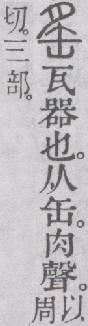 䍃瓦器也。从缶。肉聲。以周
切。三部。